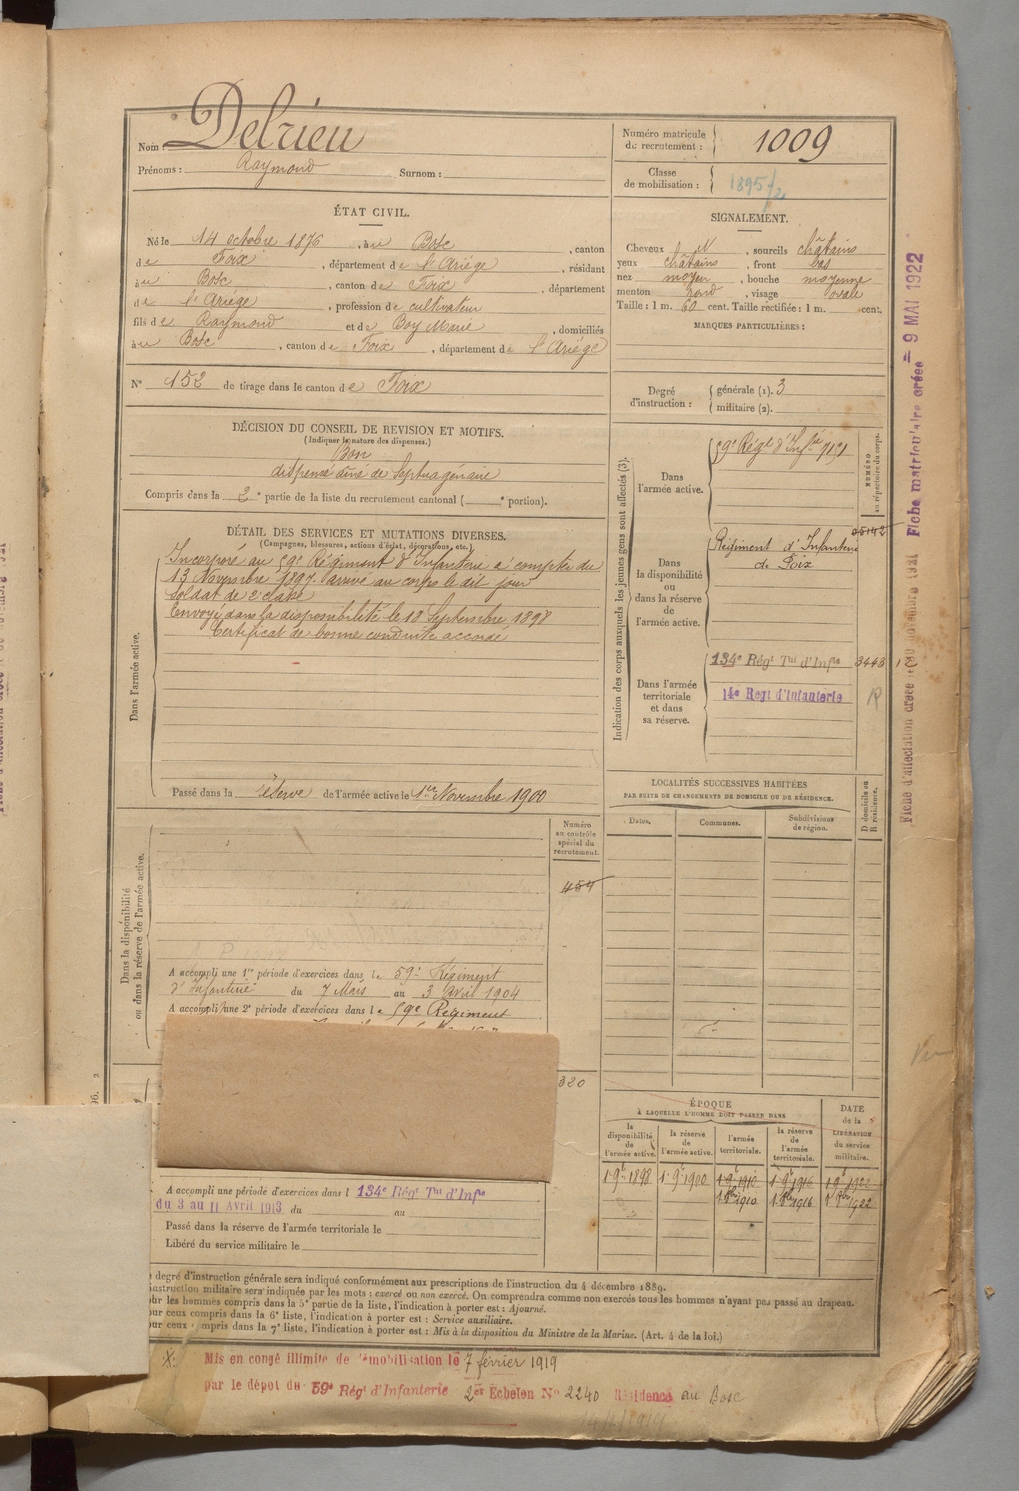 Nom Delrieu
Prénoms : Raymond Surnom :
Numéro matricule
de recrutement : 1009
Classe
de mobilisation : 1895/2
ÉTAT CIVIL.
Né le 14 octobre 1876, au Bosc, canton
de Foix, département de l'Ariége, résidant
au Bosc, canton de Foix, département
de l'Ariége, profession de cultivateur
fils de Raymond et de Boy Marie, domiciliés
au Bosc, canton de Foix, département de l'Ariége
N° 152 de tirage dans le canton de Foix
DÉCISION DU CONSEIL DE REVISION ET MOTIFS.
(Indiquer la nature des dispenses.)
Bon
dispensé ainé de septuagénaire
Compris dans la 2e partie de la liste du recrutement cantonal ( e portion).
DÉTAIL DES SERVICES ET MUTATIONS DIVERSES.
(Campagnes, blessures, actions d'éclat, décorations, etc.)
Dans l'armée active.
Incorporé au 59e Régiment d'Infanterie à compter du
13 Novembre 1897. Arrivé au corps le dit jour
soldat de 2e classe
Envoyé dans la disponibilité le 18 Septembre 1898
Certificat de bonne conduite accordé
Passé dans la réserve de l'armée active le 1er Novembre 1900
Dans la disponibilité
ou dans la réserve de l'armée active.
Numéro
au contrôle
spécial du
recrutement.
454
A accompli une 1re période d'exercices dans le 59e Régiment
d'Infanterie du 7 Mars au 3 Avril 1904
A accompli une 2e période d'exercices dans le 59e Régiment
320
A accompli une période d'exercices dans l 134e Régt Tal d'Infie
du 3 au 11 Avril 1913 du au
Passé dans la réserve de l'armée territoriale le
Libéré du service militaire le
SIGNALEMENT.
Cheveux N, sourcils châtains
yeux châtains, front bas
nez moyen, bouche moyenne
menton rond, visage ovale
Taille : 1 m. 60 cent. Taille rectifiée : 1 m. cent.
MARQUES PARTICULIÈRES :
Degré
d'instruction :
générale (1). 3
militaire (2).
Indication des corps auxquels les jeunes gens sont affectés (3).
NUMÉRO
au répertoire du corps.
Dans
l'armée active.
59e Régt d'Infie
Dans
la disponibilité
ou
dans la réserve
de
l'armée active.
Régiment d'Infanterie
de Foix
05142
Dans l'armée
territoriale
et dans
sa réserve.
134e Régt Tal d'Infie 3448
14e Regt d'Infanterie R
LOCALITÉS SUCCESSIVES HABITÉES
PAR SUITE DE CHANGEMENTS DE DOMICILE OU DE RÉSIDENCE.
Dates.
Communes.
Subdivisions
de région.
D domicile ou
R résidence.
ÉPOQUE
À LAQUELLE L'HOMME DOIT PASSER DANS
DATE
de la
LIBÉRATION
du service
militaire.
la
disponibilité
de
l'armée active.
la réserve
de
l'armée active.
l'armée
territoriale.
la réserve
de
l'armée
territoriale.
1 9e 1898 1 9e 1900 1 9e 1910 1 9e 1916 1 9e 1922
1 8bre 1910 1 8bre 1916 1 8bre 1922
degré d'instruction générale sera indiqué conformément aux prescriptions de l'instruction du 4 décembre 1889.
instruction militaire sera indiquée par les mots : exercé ou non exercé. On comprendra comme non exercés tous les hommes n'ayant pas passé au drapeau.
our les hommes compris dans la 5e partie de la liste, l'indication à porter est : Ajourné.
our ceux compris dans la 6e liste, l'indication à porter est : Service auxiliaire.
our ceux compris dans la 7e liste, l'indication à porter est : Mis à la disposition du Ministre de la Marine. (Art. 4 de la loi.)
Mis en congé illimité de démobilisation le 7 février 1919
par le dépot du 59e Régt d'Infanterie 2er Echelon N° 2240 Résidence au Bosc
Fiche matriculaire créée = 9 MAI 1922